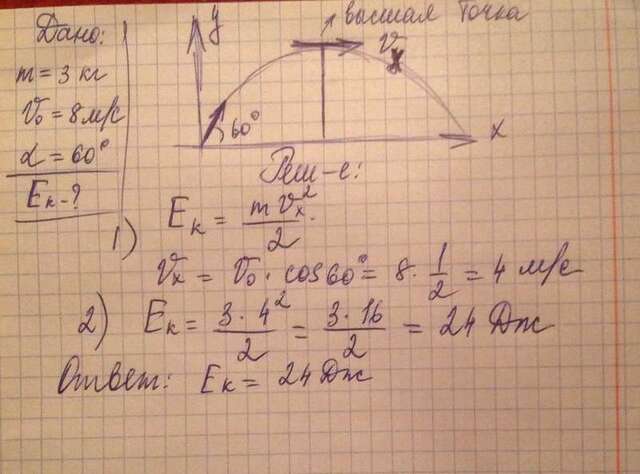 Дано:
m = 3 кг
v₀ = 8 м/с
α = 60°
Eк - ?
y
высшая точка
vₓ
60°
x
Реш-е:
1) Eк = mvₓ²/2.
vₓ = v₀ · cos 60° = 8 · 1/2 = 4 м/с
2) Eк = 3 · 4²/2 = 3 · 16/2 = 24 Дж
Ответ: Eк = 24 Дж